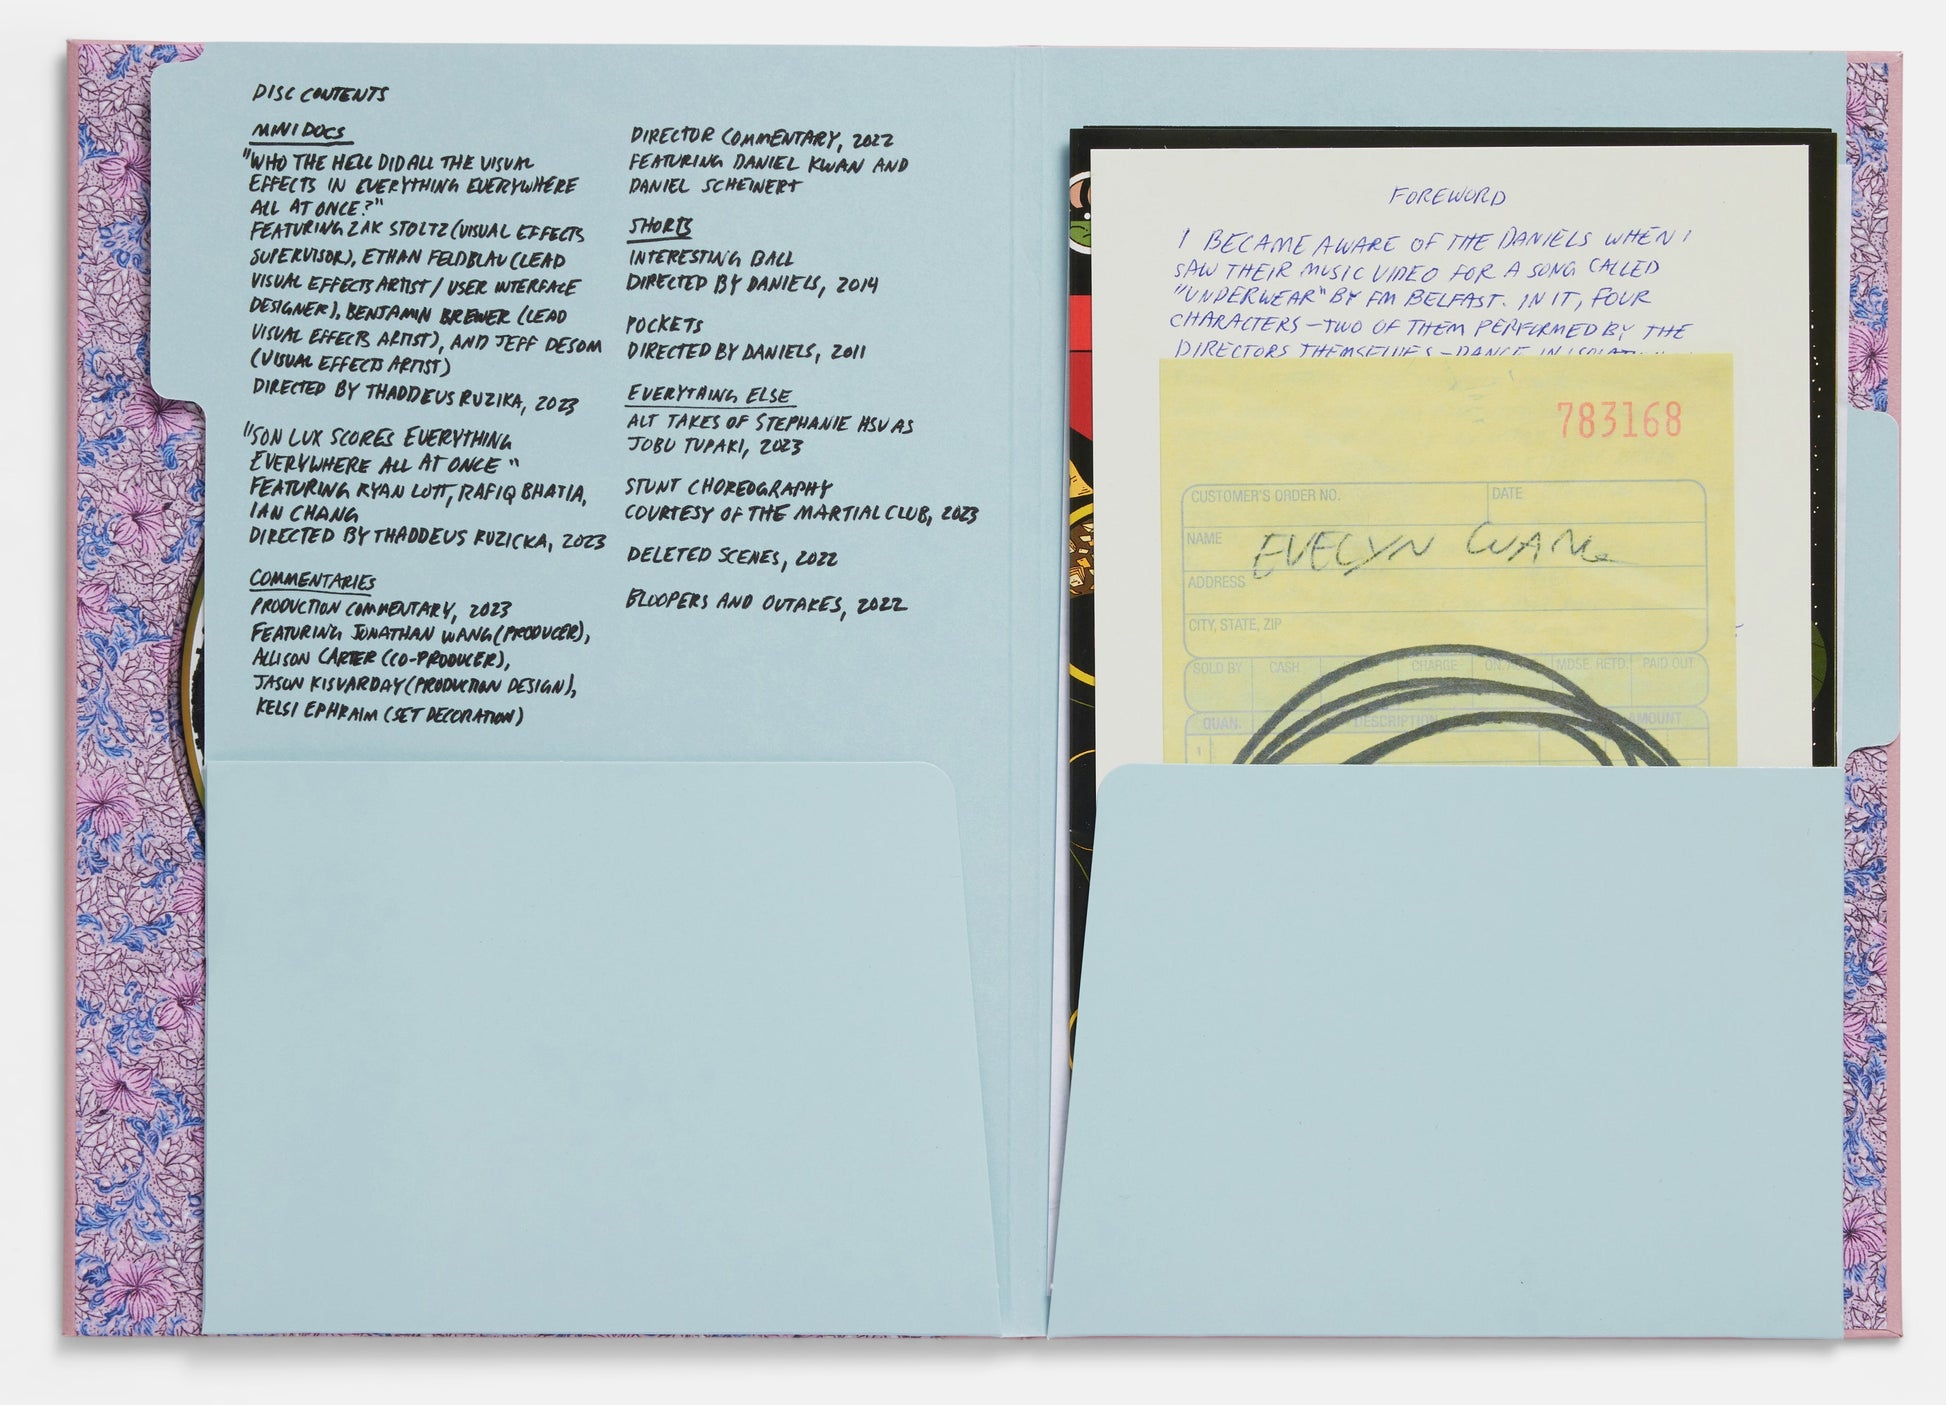 DISC CONTENTS
MINI DOCS
"WHO THE HELL DID ALL THE VISUAL
EFFECTS IN EVERYTHING EVERYWHERE
ALL AT ONCE?"
FEATURING ZAK STOLTZ (VISUAL EFFECTS
SUPERVISOR), ETHAN FELDBLAU (LEAD
VISUAL EFFECTS ARTIST / USER INTERFACE
DESIGNER), BENJAMIN BREWER (LEAD
VISUAL EFFECTS ARTIST), AND JEFF DESOM
(VISUAL EFFECTS ARTIST)
DIRECTED BY THADDEUS RUZIKA, 2023
"SON LUX SCORES EVERYTHING
EVERYWHERE ALL AT ONCE"
FEATURING RYAN LOTT, RAFIQ BHATIA,
IAN CHANG
DIRECTED BY THADDEUS RUZICKA, 2023
COMMENTARIES
PRODUCTION COMMENTARY, 2023
FEATURING JONATHAN WANG (PRODUCER),
ALLISON CARTER (CO-PRODUCER),
JASON KISVARDAY (PRODUCTION DESIGN),
KELSI EPHRAIM (SET DECORATION)
DIRECTOR COMMENTARY, 2022
FEATURING DANIEL KWAN AND
DANIEL SCHEINERT
SHORTS
INTERESTING BALL
DIRECTED BY DANIELS, 2014
POCKETS
DIRECTED BY DANIELS, 2011
EVERYTHING ELSE
ALT TAKES OF STEPHANIE HSU AS
JOBU TUPAKI, 2023
STUNT CHOREOGRAPHY
COURTESY OF THE MARTIAL CLUB, 2023
DELETED SCENES, 2022
BLOOPERS AND OUTAKES, 2022
FOREWORD
I BECAME AWARE OF THE DANIELS WHEN I
SAW THEIR MUSIC VIDEO FOR A SONG CALLED
"UNDERWEAR" BY FM BELFAST. IN IT, FOUR
CHARACTERS – TWO OF THEM PERFORMED BY THE
DIRECTORS THEMSELVES – DANCE IN
783168
CUSTOMER'S ORDER NO. DATE
NAME EVELYN WANG
ADDRESS
CITY, STATE, ZIP
SOLD BY CASH CHARGE MDSE RETD. PAID OUT
QUAN. DESCRIPTION AMOUNT
1